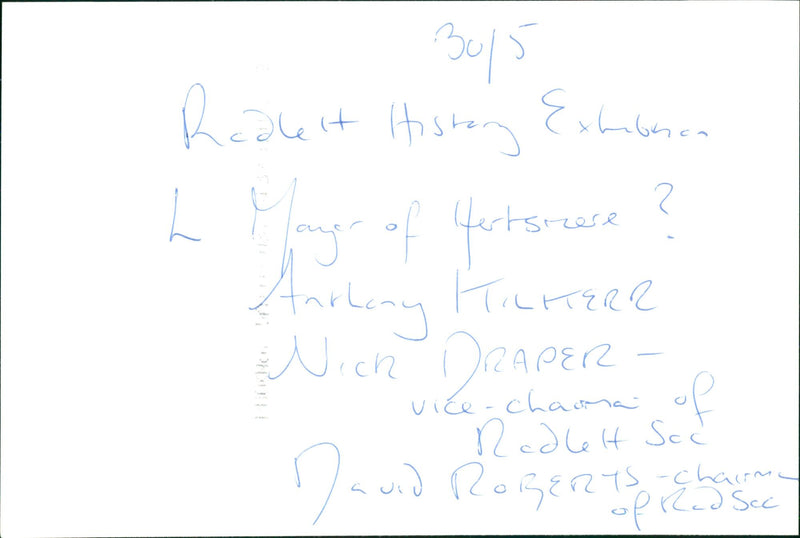 30/5
Radlett History Exhibition
L Mayor of Hertsmere ?
Anthony KILKERR
NICK DRAPER -
vice-chairman of
Radlett Soc
David ROBERTS - chairman
of Rad Soc